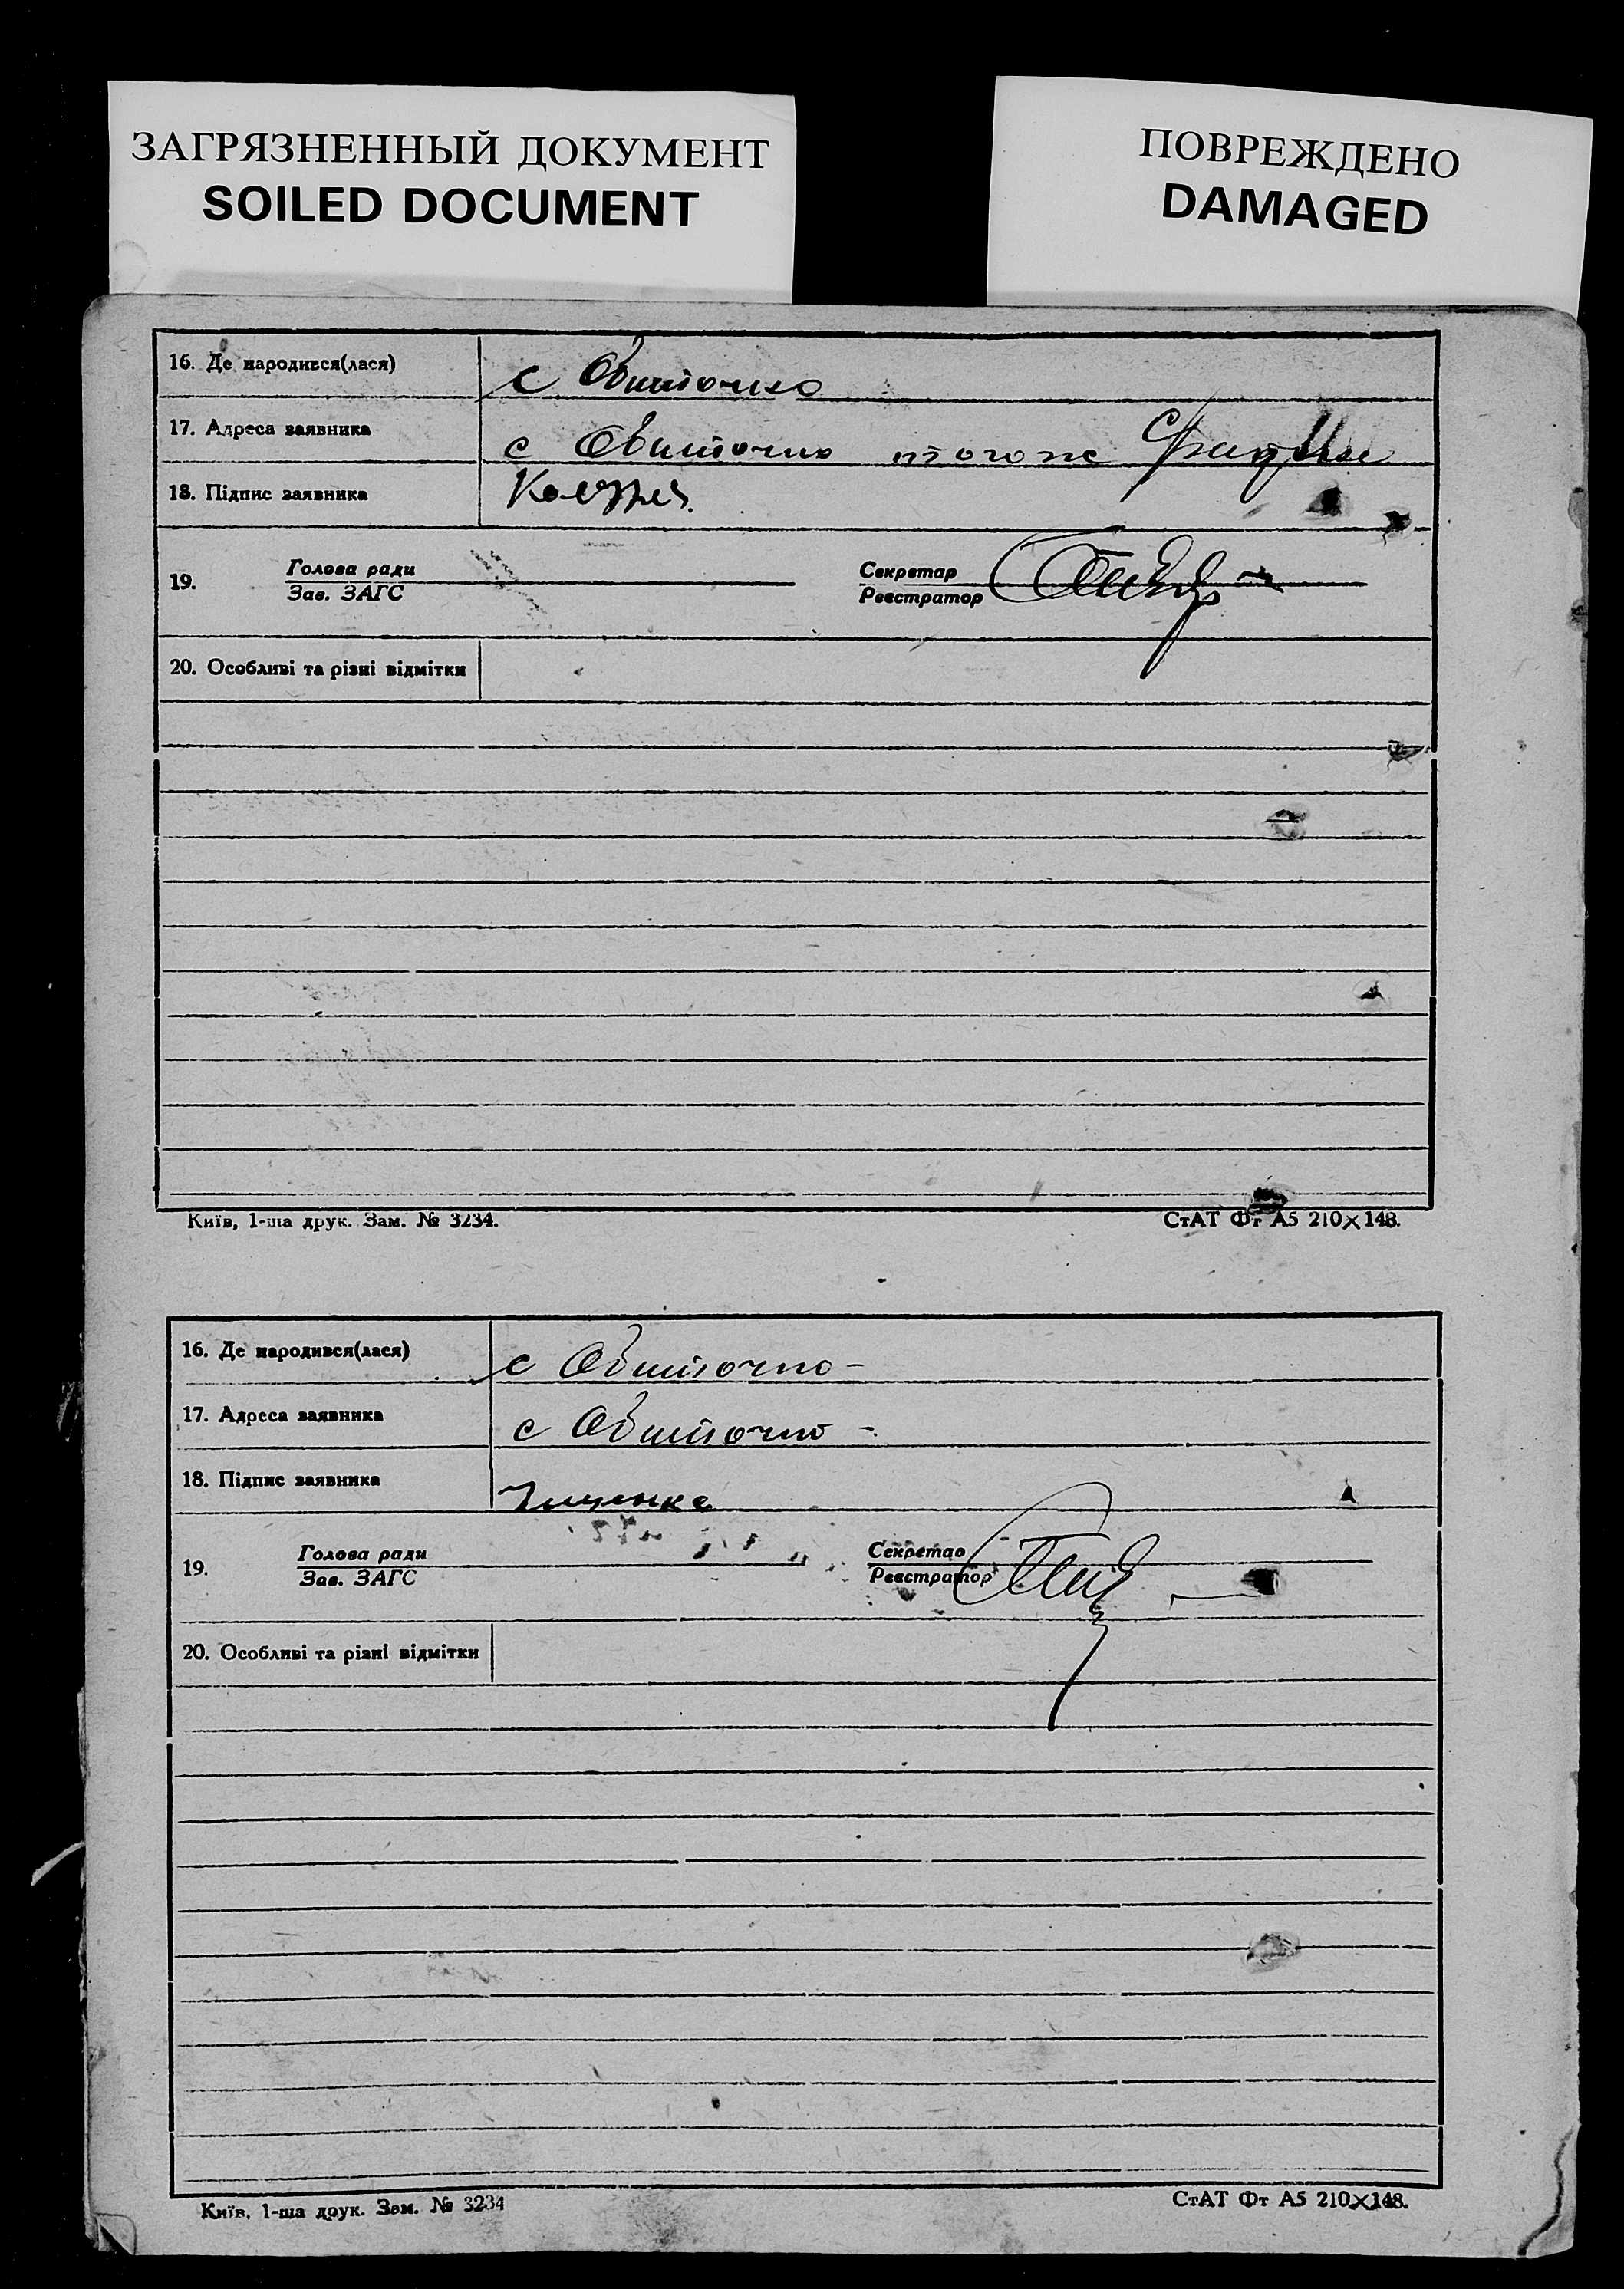 ЗАГРЯЗНЕННЫЙ ДОКУМЕНТ
SOILED DOCUMENT
ПОВРЕЖДЕНО
DAMAGED
16. Де народився(лася) с Обиточно
17. Адреса заявника с Обиточно того же
18. Підпис заявника
19. Голова ради
Зав. ЗАГС
Секретар
Реєстратор
20. Особливі та різні відмітки
Київ, 1-ша друк. Зам. № 3234.
СтАТ Фт А5 210×148.
16. Де народився(лася) с Обиточно -
17. Адреса заявника с Обиточно -
18. Підпис заявника
19. Голова ради
Зав. ЗАГС
Секретар
Реєстратор
20. Особливі та різні відмітки
Київ, 1-ша друк. Зам. № 3234
СтАТ Фт А5 210×148.